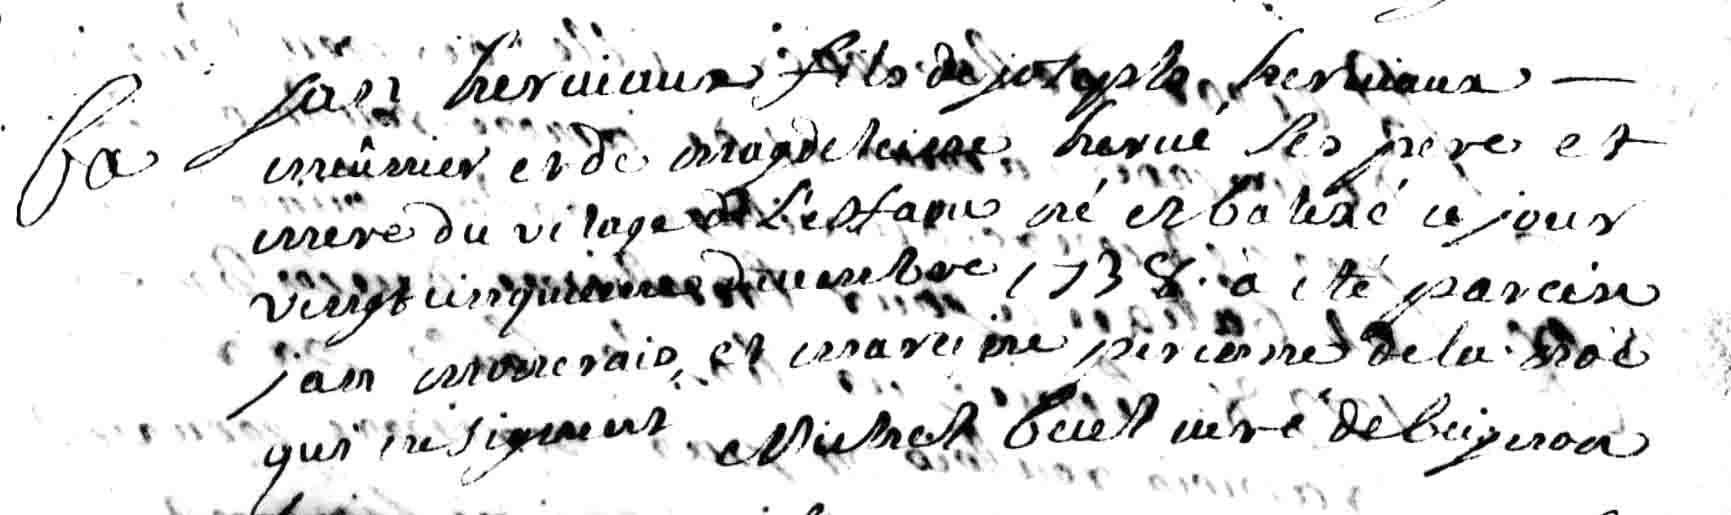 ba
jan herviaux fils de joseph herviaux —
meûnier et de magdeleine hervé ses pere et
mere du vilage de l'estang né et batizé ce jour
vingt cinquieme decembre 1738. a été parein
jan et mareine perinne de la noë
qui ne signent Michel curé de beignon